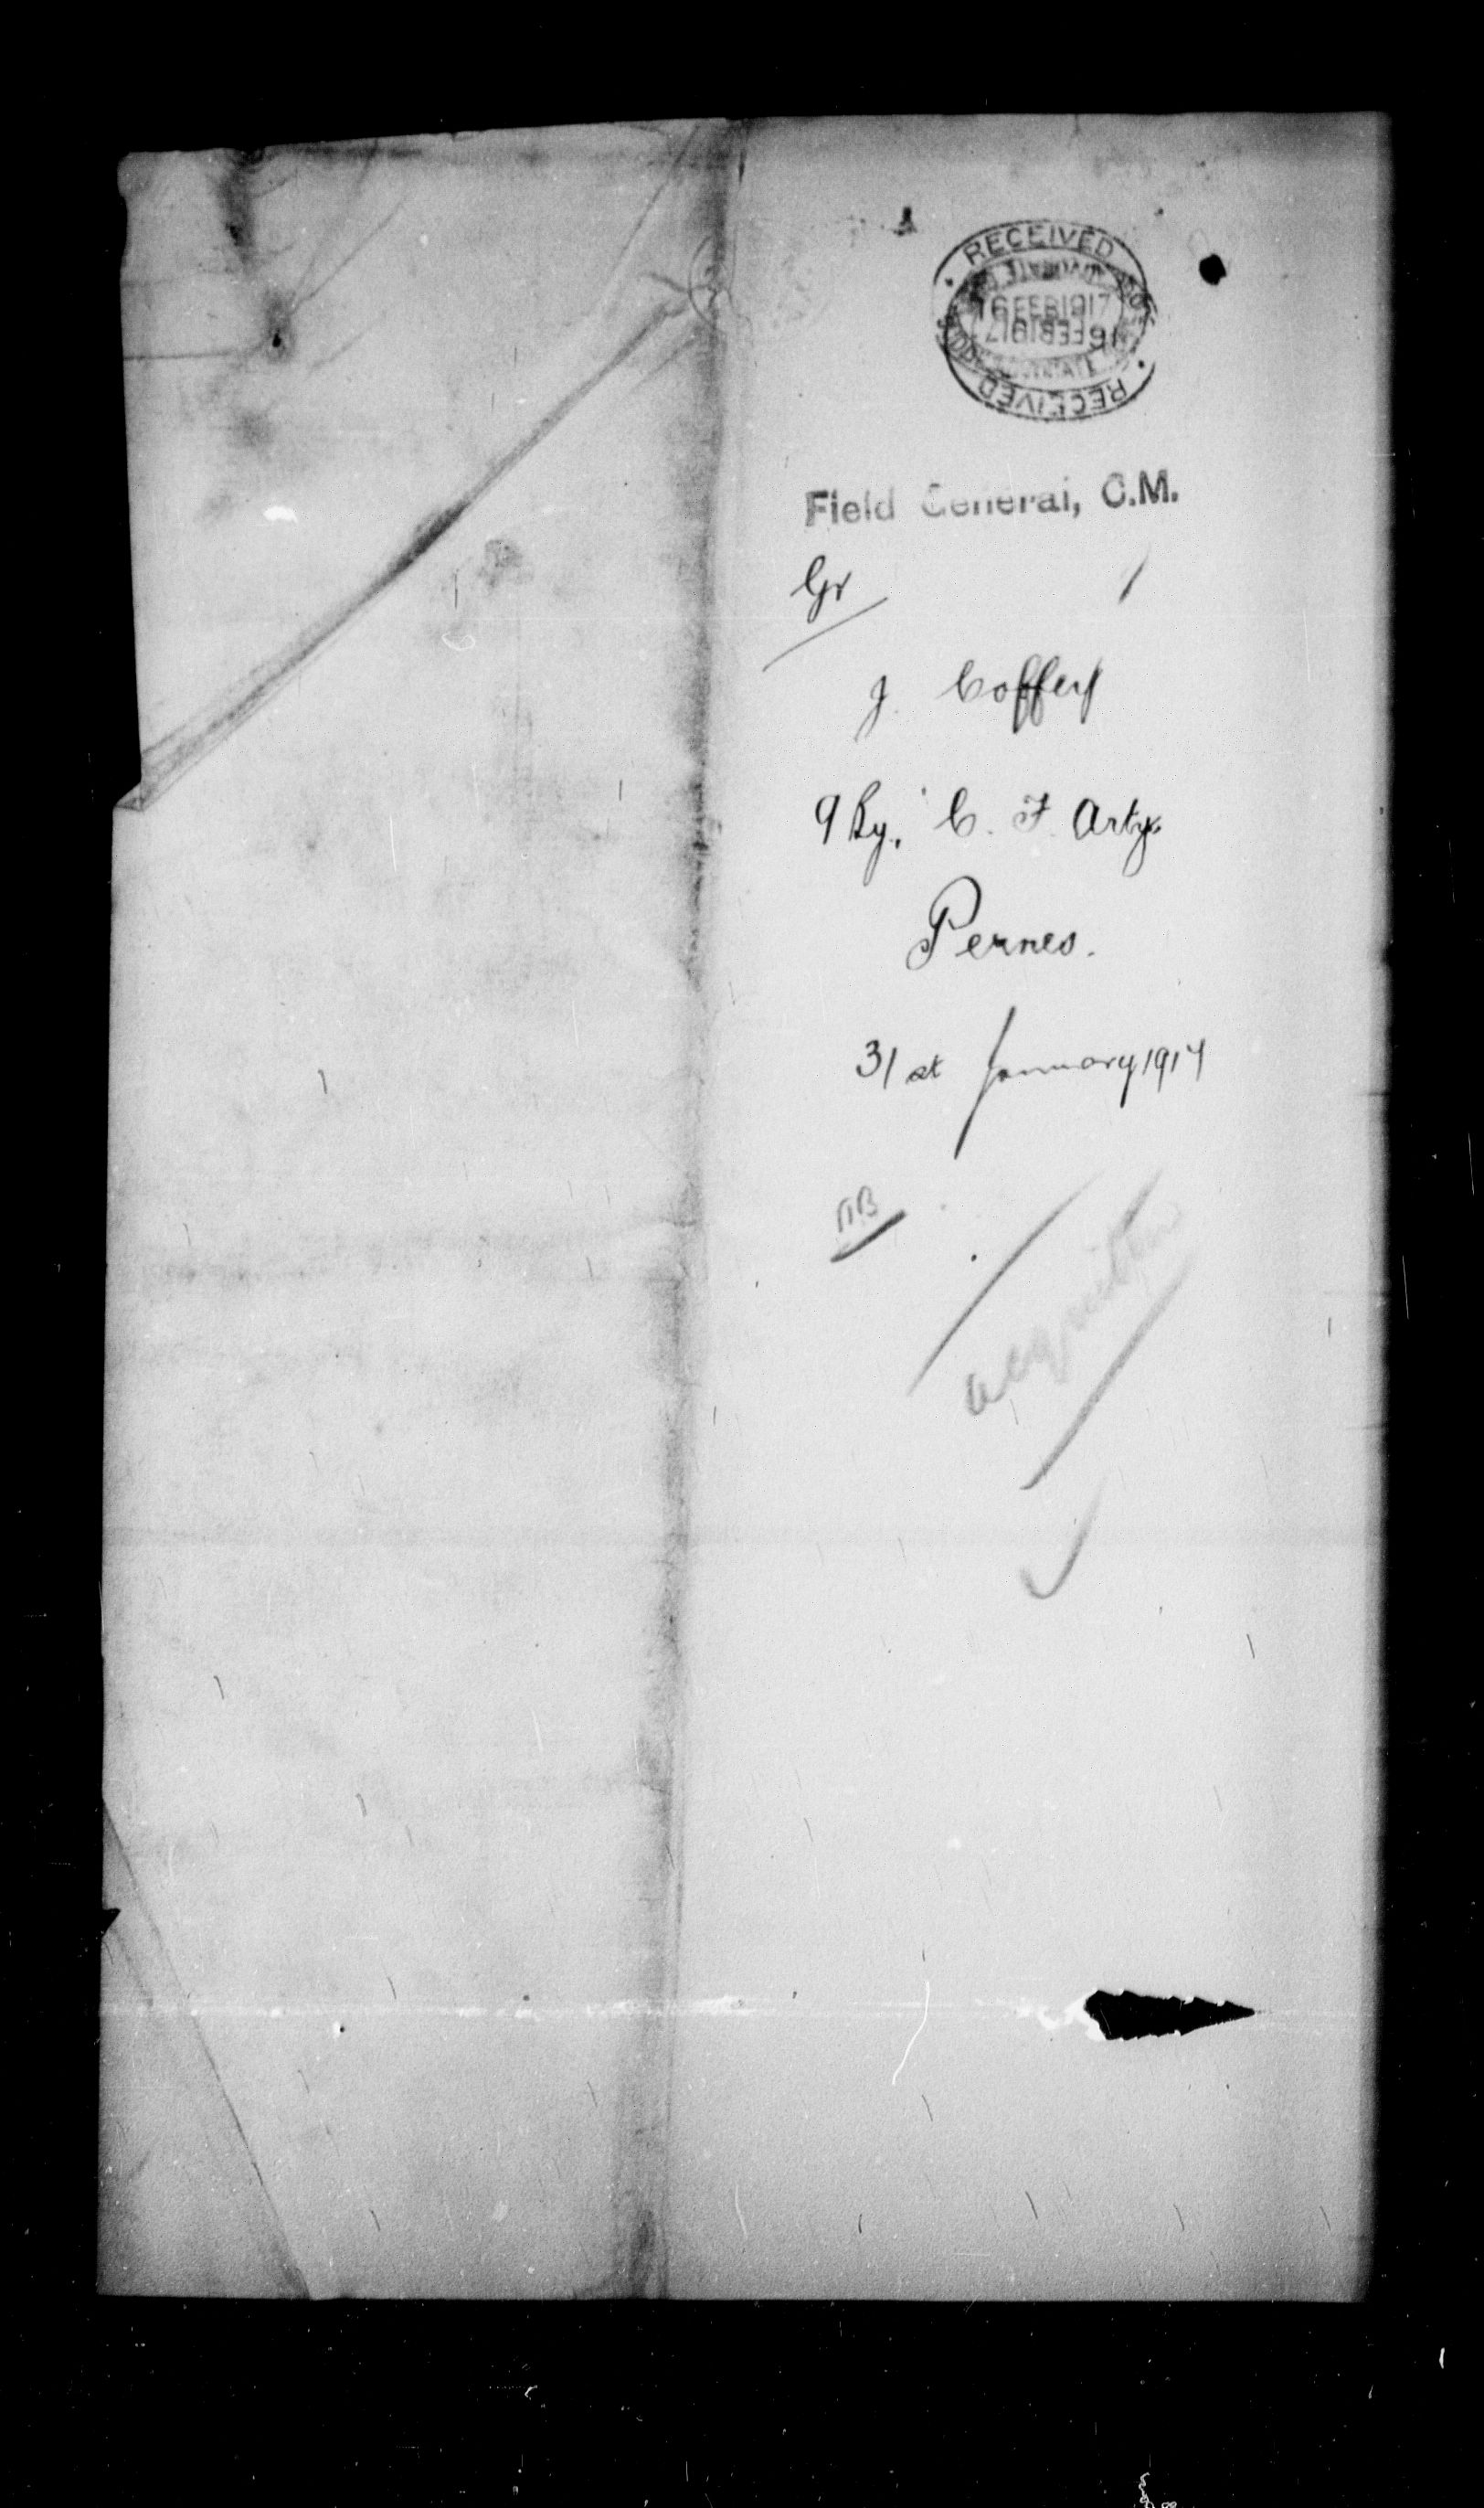 RECEIVED
16 FEB 1917
16 FEB 1917
RECEIVED
Field General, C.M.
Gr
J. Coffey
9 By, C. F. Arty.
Pernes.
31st January 1917
acquitted